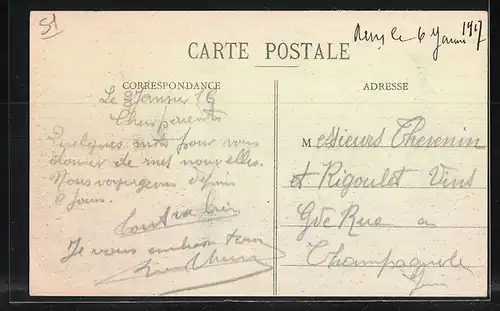 51
Le 6 Janvier 1917
CARTE POSTALE
CORRESPONDANCE
ADRESSE
Le Janvier 16
Chers parents
Quelques mots pour vous
donner de mes nouvelles.
Nous voyageons depuis
2 jours.
tout va bien
Je vous embrasse
Messieurs Thevenin
et Rigoulet Vins
Gde Rue a
Champagnole
Jura